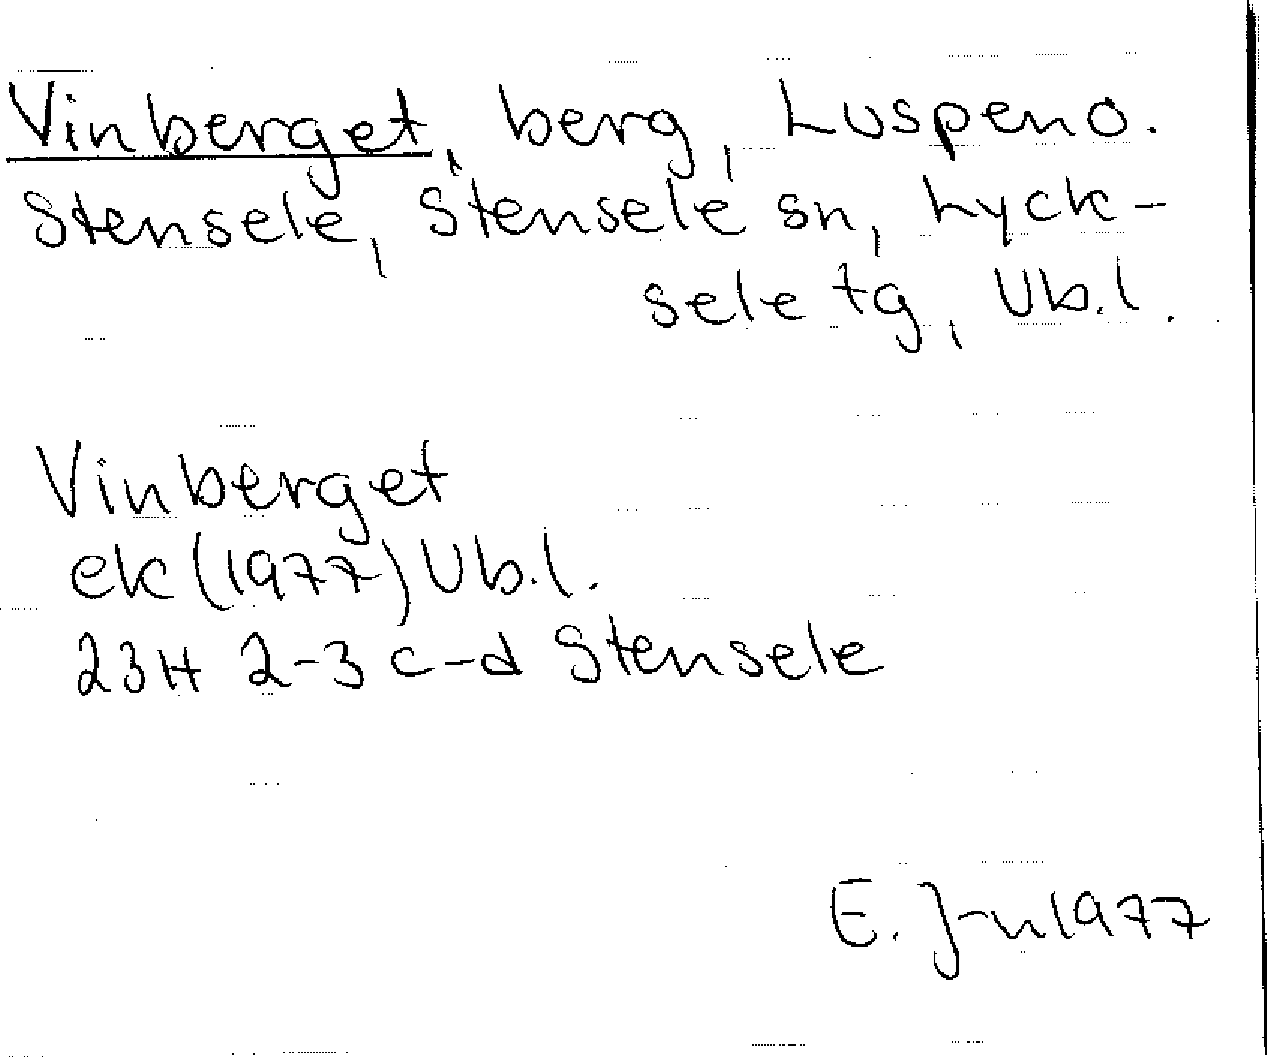 Vinberget, berg, Luspen o.
Stensele, Stensele sn, Lyck-
sele tg, Vb.l.
Vinberget
ek (1977) Vb.l.
23H 2-3 c-d Stensele
E. J-n 1977